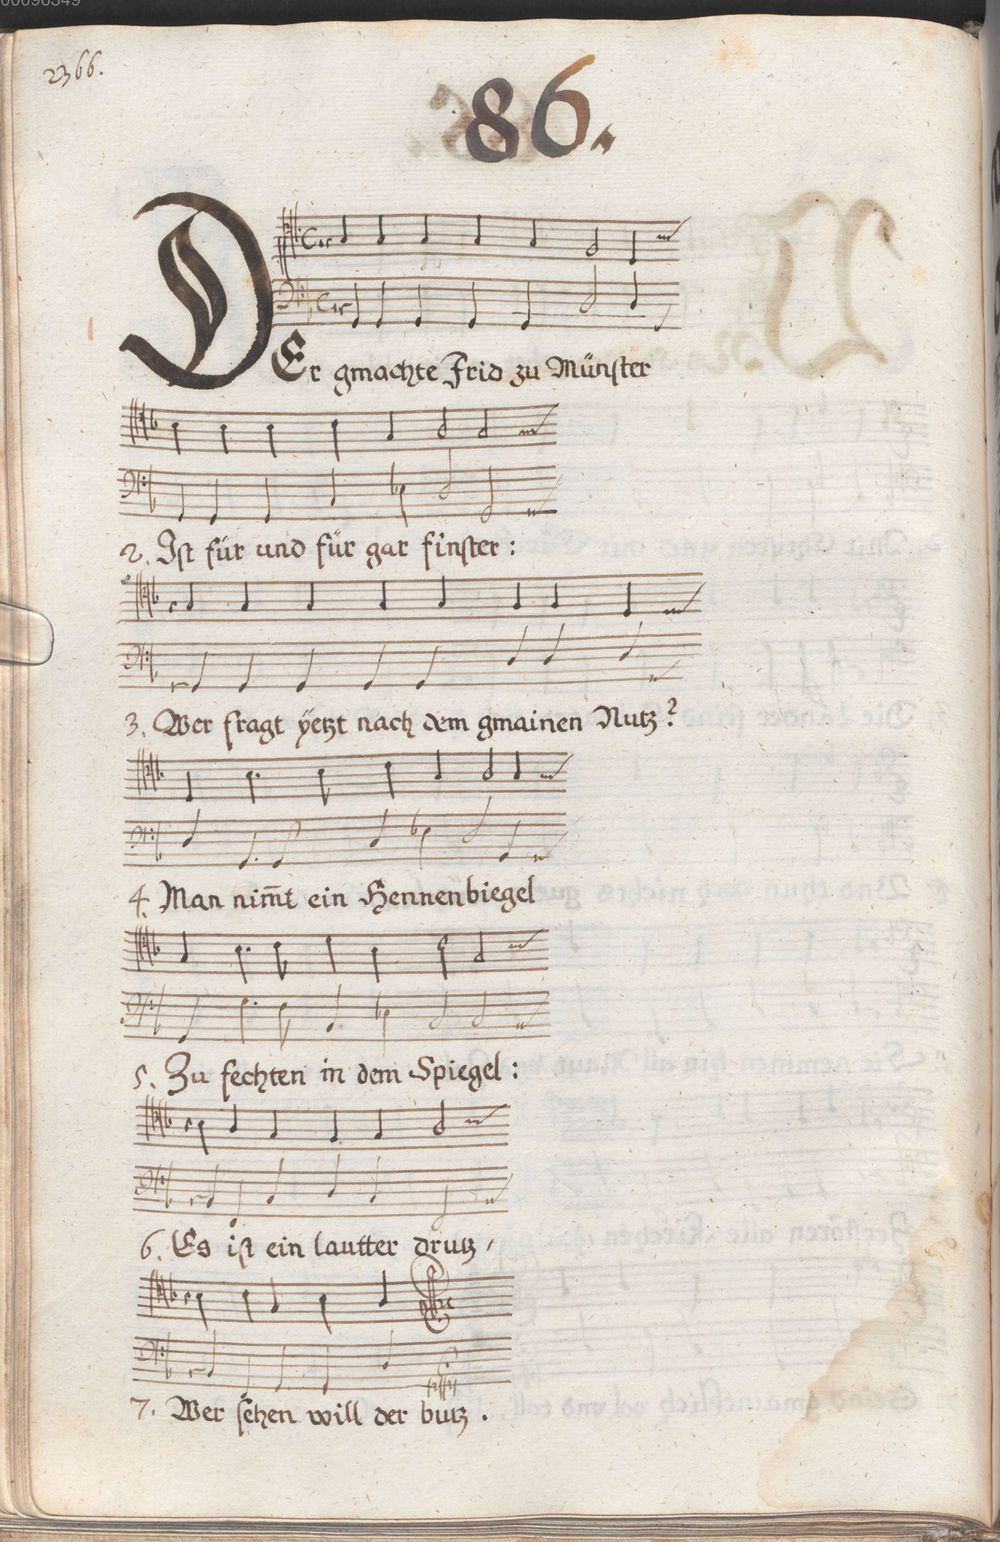 00098349
2366.
86.
DEr gmachte Frid zu Münster
2. Ist für und für gar finster:
3. Wer fragt ÿetzt nach dem gmainen Nutz?
4. Man nim̄t ein Hennenbiegel
5. Zu fechten in dem Spiegel:
6. Es ist ein lautter drutz,
7. Wer sehen will der butz.